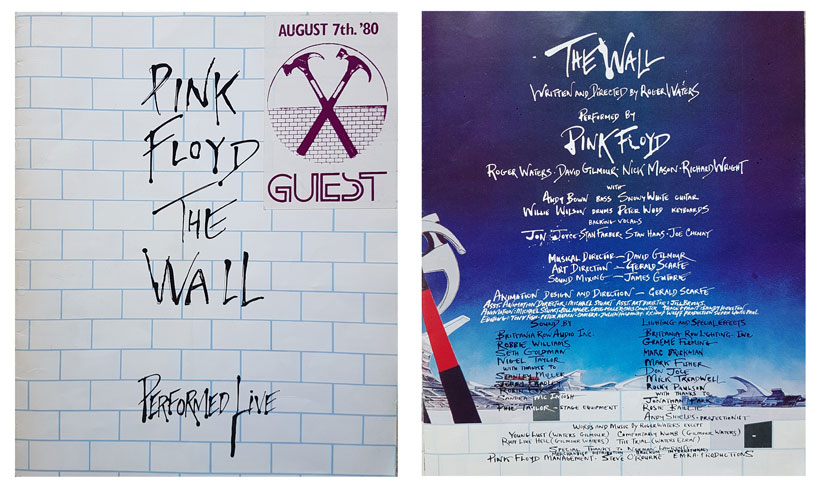 PINK
FLOYD
THE
WALL
PERFORMED LIVE
AUGUST 7th. '80
GUEST
THE WALL
WRITTEN AND DIRECTED BY ROGER WATERS
PERFORMED BY
PINK FLOYD
ROGER WATERS · DAVID GILMOUR · NICK MASON · RICHARD WRIGHT
WITH
ANDY BOWN BASS SNOWY WHITE GUITAR
WILLIE WILSON DRUMS PETER WOOD KEYBOARDS
BACKING VOCALS
JON JOYCE · STAN FARBER · STAN HAAS · JOE CHEMAY
MUSICAL DIRECTOR — DAVID GILMOUR
ART DIRECTION — GERALD SCARFE
SOUND MIXING — JAMES GUTHRIE
ANIMATION DESIGN AND DIRECTION — GERALD SCARFE
SOUND BY
BRITTANIA ROW AUDIO INC.
ROBBIE WILLIAMS
SETH GOLDMAN
NIGEL TAYLOR
WITH THANKS TO
STANLEY MILLER
PHIL TAYLOR STAGE EQUIPMENT
LIGHTING AND SPECIAL EFFECTS
BRITTANIA ROW LIGHTING INC.
GRAEME FLEMING
MARC BRICKMAN
MARK FISHER
MICK TREADWELL
ROCKY PAULSON
WITH THANKS TO
JONATHAN PARK
ANDY SHIELDS · PROJECTIONIST
WORDS AND MUSIC BY ROGER WATERS EXCEPT
YOUNG LUST (WATERS GILMOUR) COMFORTABLY NUMB (GILMOUR WATERS)
RUN LIKE HELL (GILMOUR WATERS) THE TRIAL (WATERS EZRIN)
PINK FLOYD MANAGEMENT · STEVE O'ROURKE EMKA PRODUCTIONS